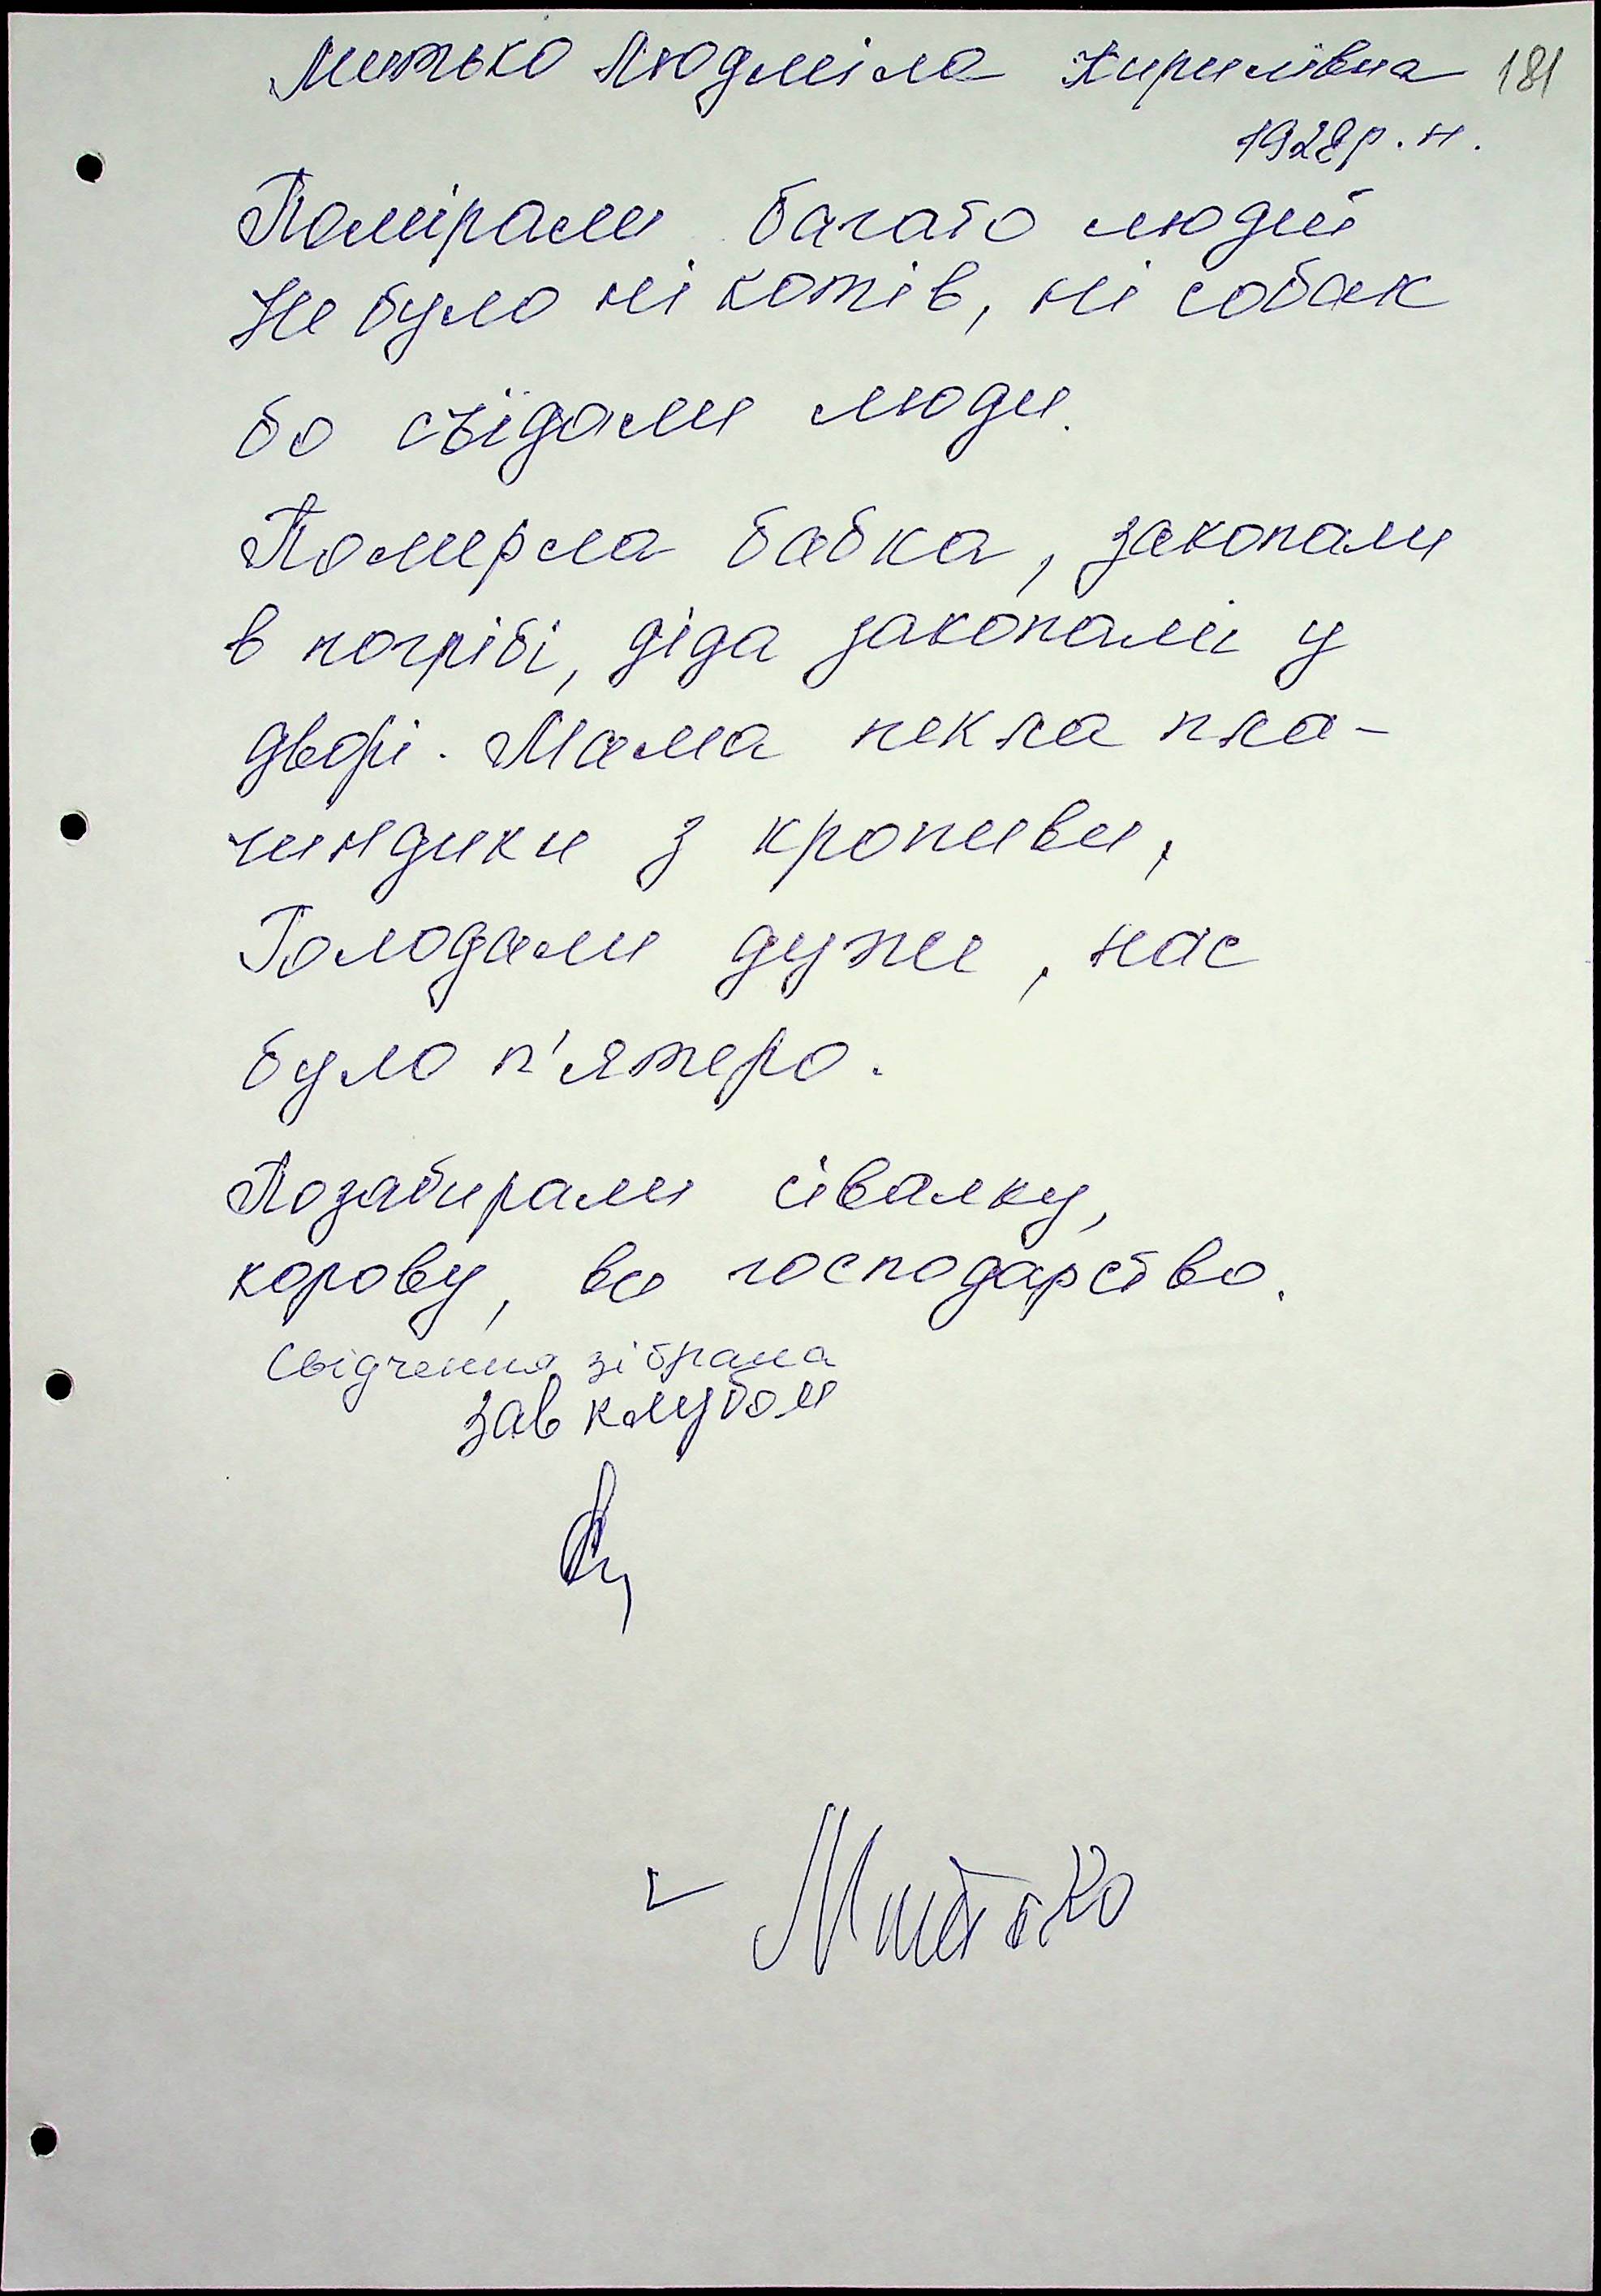 Митько Людміла Кирилівна 181
1928 р. н.
Помірали багато людей
Не було ні котів, ні собак
бо съїдали люди.
Померла бабка, закопали
в погрібі, діда закопалі у
дворі. Мама пекла пла-
чиндики з кропиви,
Голодали дуже, нас
було п'ятеро.
Позабирали сівалку,
корову, все господарство.
Свідчення зібрана
зав клубом
Митько